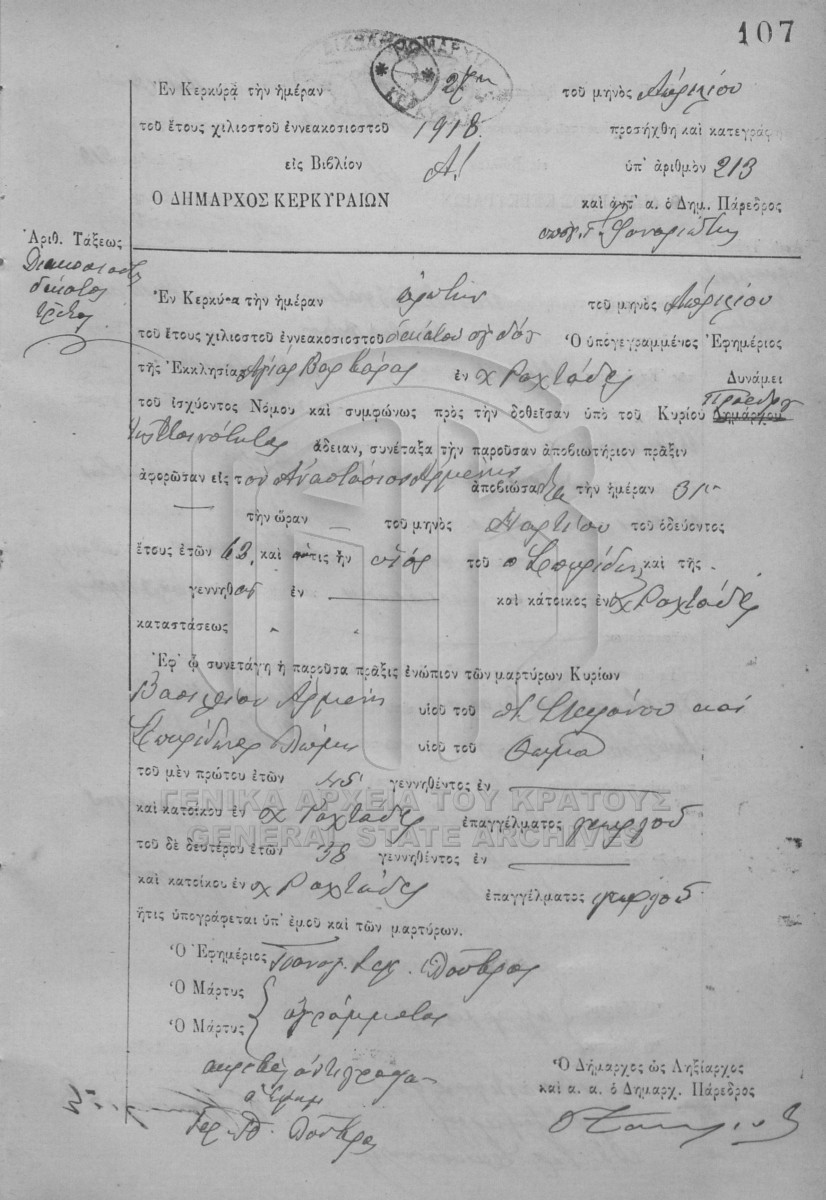 107
Ἐν Κερκύρᾳ τὴν ἡμέραν 27ην τοῦ μηνὸς Ἀπριλίου
τοῦ ἔτους χιλιοστοῦ ἐννεακοσιοστοῦ 1918 προσήχθη καὶ κατεγράφη
εἰς Βιβλίον Α! ὑπ' ἀριθμὸν 213
Ὁ ΔΗΜΑΡΧΟΣ ΚΕΡΚΥΡΑΙΩΝ καὶ ἀντ' α. ὁ Δημ. Πάρεδρος
Ἀριθ. Τάξεως
Διακοσιοστὸς
δέκατος
τρίτος
Ἐν Κερκύρᾳ τὴν ἡμέραν πρώτην τοῦ μηνὸς Ἀπριλίου
τοῦ ἔτους χιλιοστοῦ ἐννεακοσιοστοῦ δεκάτου ὀγδόου Ὁ ὑπογεγραμμένος Ἐφημέριος
τῆς Ἐκκλησίας Ἁγίας Βαρβάρας ἐν χ Ραχτάδες Δυνάμει
τοῦ ἰσχύοντος Νόμου καὶ συμφώνως πρὸς τὴν δοθεῖσαν ὑπὸ τοῦ Κυρίου Δημάρχου Προέδρου
τῆς Κοινότητας ἄδειαν, συνέταξα τὴν παροῦσαν ἀποβιωτήριον πρᾶξιν
ἀφορῶσαν εἰς τὸν Ἀναστάσιον Ἀρμένην ἀποβιώσαντα τὴν ἡμέραν 31ην
τὴν ὥραν — τοῦ μηνὸς Μαρτίου τοῦ ὁδεύοντος
ἔτους ἐτῶν 62, καὶ ὅστις ἦν υἱὸς τοῦ π Σπυρίδων καὶ τῆς
γεννηθεὶς ἐν — καὶ κάτοικος ἐν χ Ραχτάδες
καταστάσεως
Ἐφ' ᾧ συνετάγη ἡ παροῦσα πρᾶξις ἐνώπιον τῶν μαρτύρων Κυρίων
Βασιλείου Ἀρμένη υἱοῦ τοῦ Στεφάνου καὶ
Σπυρίδωνος υἱοῦ τοῦ Θωμᾶ
τοῦ μὲν πρώτου ἐτῶν 45 γεννηθέντος ἐν —
καὶ κατοίκου ἐν χ Ραχτάδες ἐπαγγέλματος γεωργοῦ
τοῦ δὲ δευτέρου ἐτῶν 38 γεννηθέντος ἐν —
καὶ κατοίκου ἐν χ Ραχτάδες ἐπαγγέλματος γεωργοῦ
ἥτις ὑπογράφεται ὑπ' ἐμοῦ καὶ τῶν μαρτύρων.
Ὁ Ἐφημέριος
Ὁ Μάρτυς
Ὁ Μάρτυς ἀγράμματος
ἀκριβὲς ἀντίγραφον
ὁ Ἐφημ
Ὁ Δήμαρχος ὡς Ληξίαρχος
καὶ α. α. ὁ Δημαρχ. Πάρεδρος
ΓΕΝΙΚΑ ΑΡΧΕΙΑ ΤΟΥ ΚΡΑΤΟΥΣ
GENERAL STATE ARCHIVES